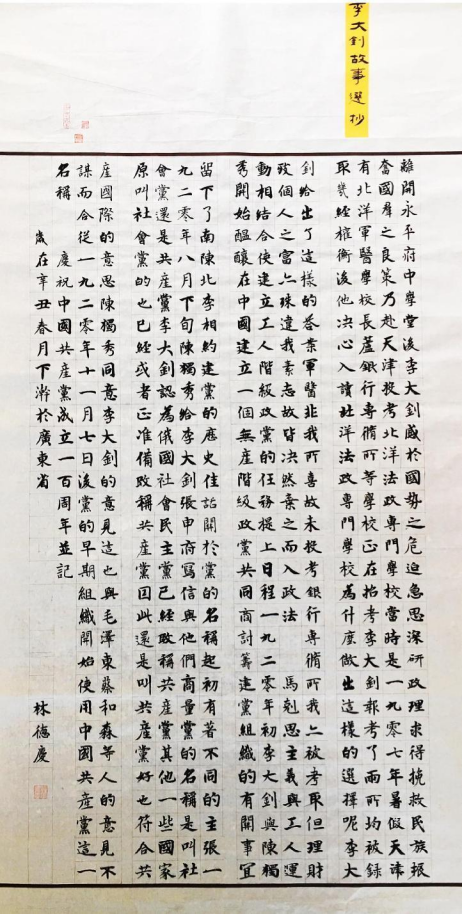 李大釗故事選抄
離開永平府中學堂後李大釗感於國勢之危迫急思深研政理求得挽救民族振
奮國群之良策乃赴天津投考北洋法政專門學校當時是一九零七年暑假天津
有北洋軍醫學校長蘆銀行專脩所等學校正在招考李大釗報考了兩所均被錄
取幾經權衡後他決心入讀北洋法政專門學校為什麼做出這樣的選擇呢李大
釗給出了這樣的答案軍醫非我所喜故未投考銀行專脩所我亦被考取但理財
致個人之富亦殊違我素志故皆決然棄之而入政法 馬剋思主義與工人運
動相結合使建立工人階級政黨的任務提上日程一九二零年初李大釗與陳獨
秀開始醞釀在中國建立一個無產階級政黨共同商討籌建黨組織的有關事宜
留下了南陳北李相約建黨的歷史佳話關於黨的名稱起初有著不同的主張一
九二零年八月下旬陳獨秀給李大釗張申府寫信與他們商量黨的名稱是叫社
會黨還是共產黨李大釗認為俄國社會民主黨已經改稱共產黨其他一些國家
原叫社會黨的也已經或者正准備改稱共產黨因此還是叫共產黨好也符合共
產國際的意思陳獨秀同意李大釗的意見這也與毛澤東蔡和森等人的意見不
謀而合從一九二零年十一月七日後黨的早期組織開始使用中國共產黨這一
名稱 慶祝中國共產黨成立一百周年並記
歲在辛丑春月下澣於廣東省 林德慶